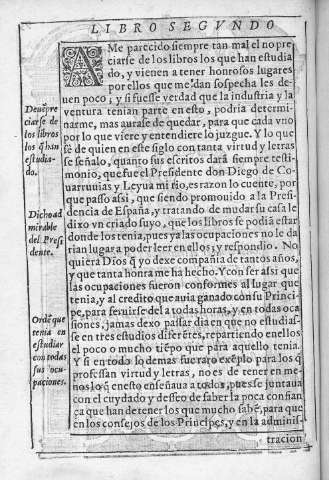 LIBRO SEGVNDO
A Me parecido siempre tan mal el no pre
ciarse de los libros los que han estudia
do, y vienen a tener honrosos lugares
por ellos que me dan sospecha les de-
uen poco, y si fuesse verdad que la industria y la
ventura tenian parte en esto, podria determi-
narme, mas aurase de quedar, para que cada vno
por lo que viere y entendiere lo juzgue. Y lo que
sè de quien en este siglo con tanta virtud y letras
se señalo, quanto sus escritos darã siempre testi-
monio, que fue el Presidente don Diego de Co-
uarruuias y Leyua mi tio, es razon lo cuente, por
que passo assi, que siendo promouido a la Presi-
dencia de España, y tratando de mudar su casa le
dixo vn criado suyo, que los libros se podiã estar
donde los tenia, pues ya las ocupaciones no le da
rian lugar a poder leer en ellos, y respondio. No
quiera Dios q̃ yo dexe compañia de tantos años,
y que tanta honra me ha hecho. Y con ser assi que
las ocupaciones fueron conformes al lugar que
tenia, y al credito que auia ganado con su Princi-
pe, para seruirse del a todas horas, y en todas oca
siones, jamas dexo passar dia en que no estudias-
se en tres estudios diferẽtes, repartiendo en ellos
el poco o mucho tiẽpo que para aquello tenia.
Y si en todo lo demas fue raro exẽplo para los q̃
professan virtud y letras, no es de tener en me-
nos lo q̃ en esto enseñaua a todos, pues se juntaua
con el cuydado y desseo de saber la poca confian
ça que han de tener los que mucho sabẽ, para que
en los consejos de los Principes, y en la adminis-
tracion
Deuẽ pre
ciarse de
los libros
los q̃ han
estudia-
do.
Dicho ad
mirable
del Presi
dente.
Ordẽ que
tenia en
estudiar
con todas
sus ocu-
paciones.